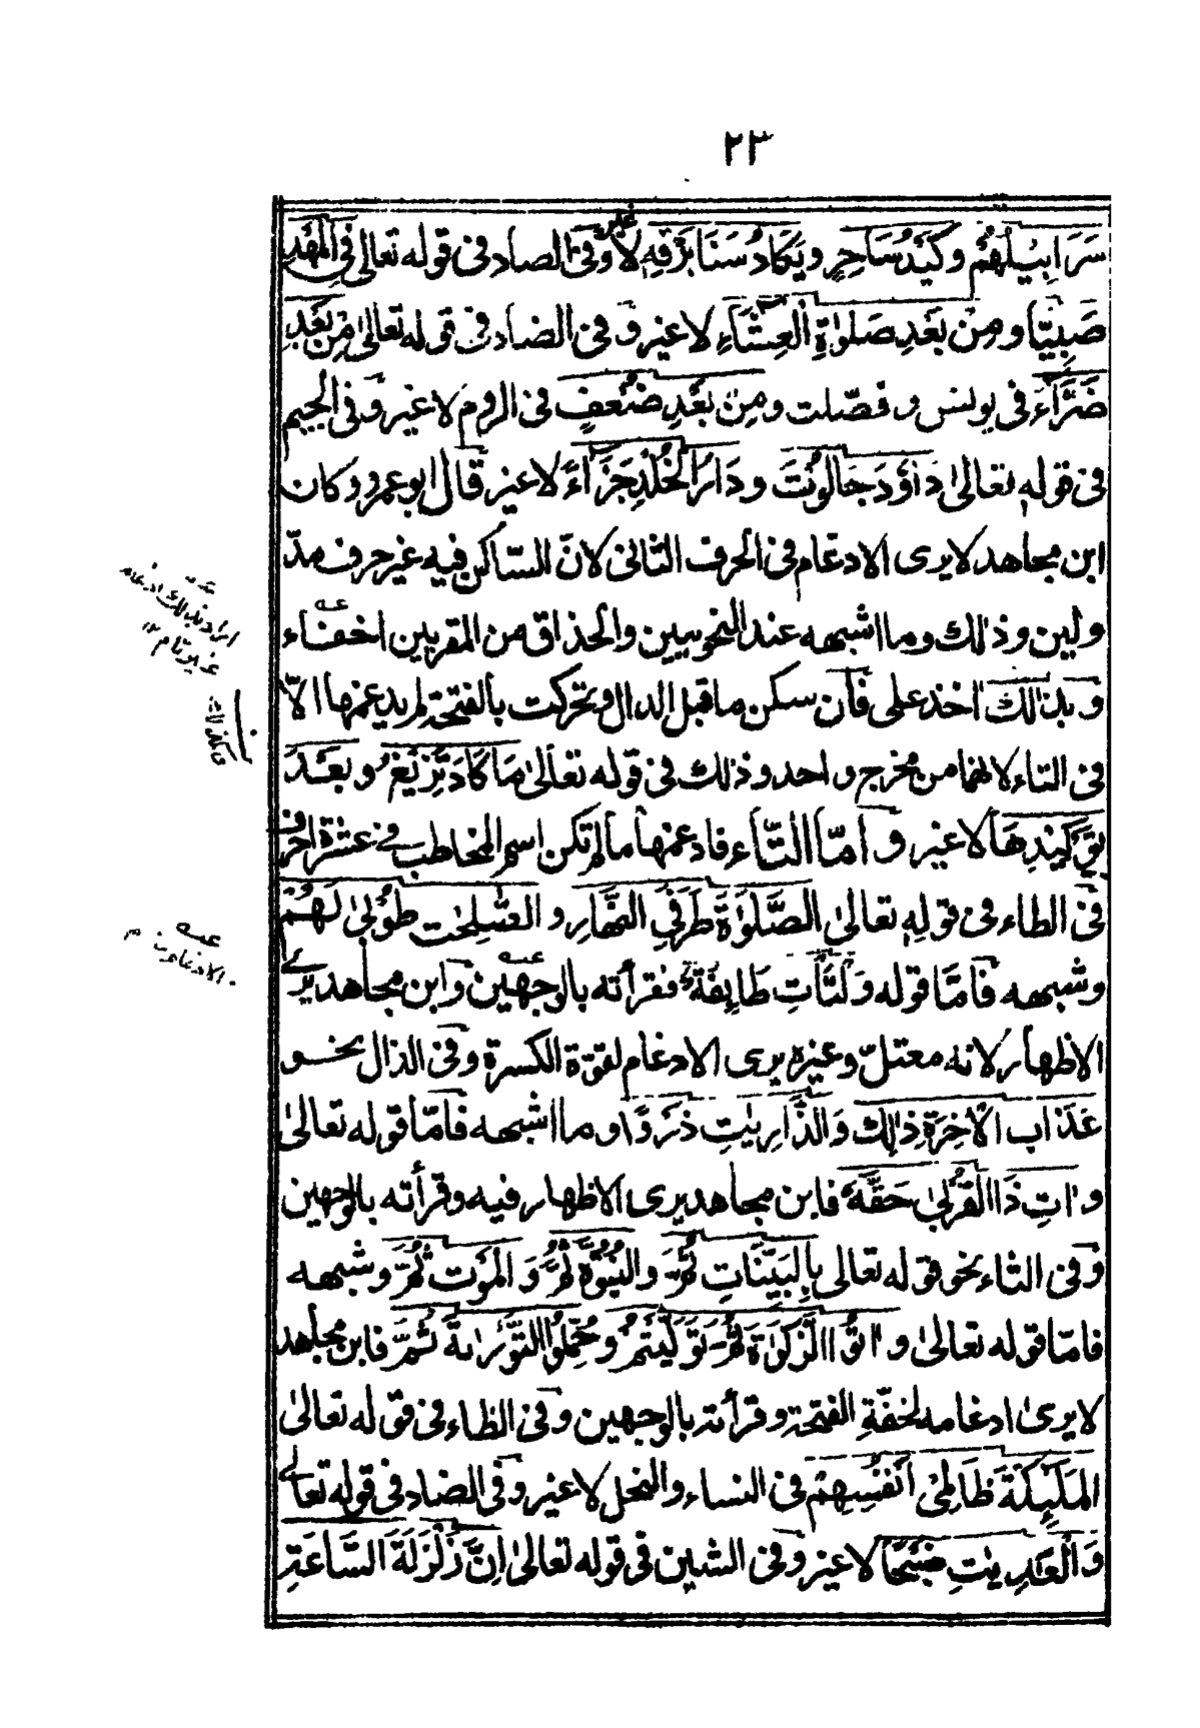 ٢٣
سَرَابِيلُهُمْ وكَيْدُ سَاحِرٍ ويَكَادُ سَنَا بَرْقِهِ لا غير وفى الصاد فى قوله تعالى فِى الْمَهْدِ
صَبِيًّا ومِنْ بَعْدِ صَلوٰةِ الْعِشَآءِ لا غير وفى الضاد فى قوله تعالىٰ مِنْ بَعْدِ
ضَرَّآءَ فى يونس و فصّلت ومِنْ بَعْدِ ضُعْفٍ فى الروم لا غير وفى الجيم
فى قوله تعالىٰ دَاوٗدَ جَالُوْتَ ودَارُ الْخُلْدِ جَزَآءً لا غير قال ابو عمرو وكان
ابن مجاهد لا يرى الادغام فى الحرف الثانى لانّ السّاكن فيه غير حرف مدّ
ولين وذلك وما اشبهه عند النحويين والحذاق من المقريين اخفاء
وبذلك اخذ على فان سكن ما قبل الدال وتحركت بالفتحة لم يدغمها الّا
فى التاء لانهما من مخرج واحد وذلك فى قوله تعالىٰ مَا كَادَ تَزِيْغُ وبَعْدَ
تَوْكِيْدِهَا لا غير و امّا التّاء فادغمها ما لم تكن اسم المخاطب فى عشرة احرف
فى الطاء فى قوله تعالىٰ الصَّلوٰةَ طَرَفَىِ النَّهَارِ و الصّٰلِحٰتِ طُوْبىٰ لَهُمْ
وشبهه فَامّا قوله وَلْتَأْتِ طَآئِفَةٌ فقرأته بالوجهين وابن مجاهد يرى
الاظهار لانه معتلّ وغيره يرى الادغام لقوّة الكسرة وفى الذال نحو
عَذَابَ الْاٰخِرَةِ ذٰلِكَ وَالذَّارِيٰتِ ذَرْوًا وما اشبهه فامّا قوله تعالىٰ
وَاٰتِ ذَا الْقُرْبىٰ حَقَّهٗ فابن مجاهد يرى الاظهار فيه وقرأته بالوجهين
وفى الثاء نحو قوله تعالى بِالْبَيِّنَاتِ ثُمَّ والنُّبُوَّةَ ثُمَّ وَ الْمَوْتِ ثُمَّ وشبهه
فامّا قوله تعالىٰ واٰتُوا الزَّكوٰةَ ثُمَّ تَوَلَّيْتُمْ وحُمِّلُوا التَّوْرٰىةَ ثُمَّ فابن مجاهد
لا يرىٰ ادغامه لخفّةِ الفتحة وقرأته بالوجهين وفى الظاء فى قوله تعالىٰ
الْمَلٰٓئِكَةُ ظَالِمِىْ اَنْفُسِهِمْ فى النساء والنحل لا غير وفى الضاد فى قوله تعالے
وَالْعٰدِيٰتِ ضَبْحًا لا غير وفى الشين فى قوله تعالىٰ اِنَّ زَلْزَلَةَ السَّاعَةِ
اراد بذلك ادغام
غير تام ١٢
الادغام